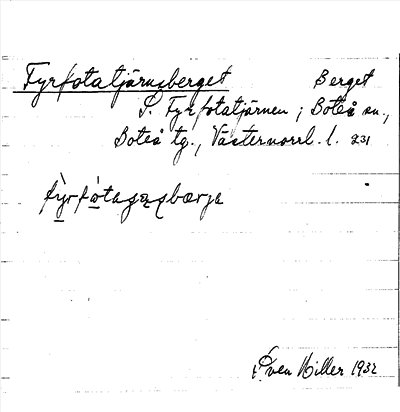 Fyrfotatjärnsberget Berget
S. Fyrfotatjärnen; Boteå sn.,
Boteå tg., Västernorrl. l. 231
Sven Hiller 1932